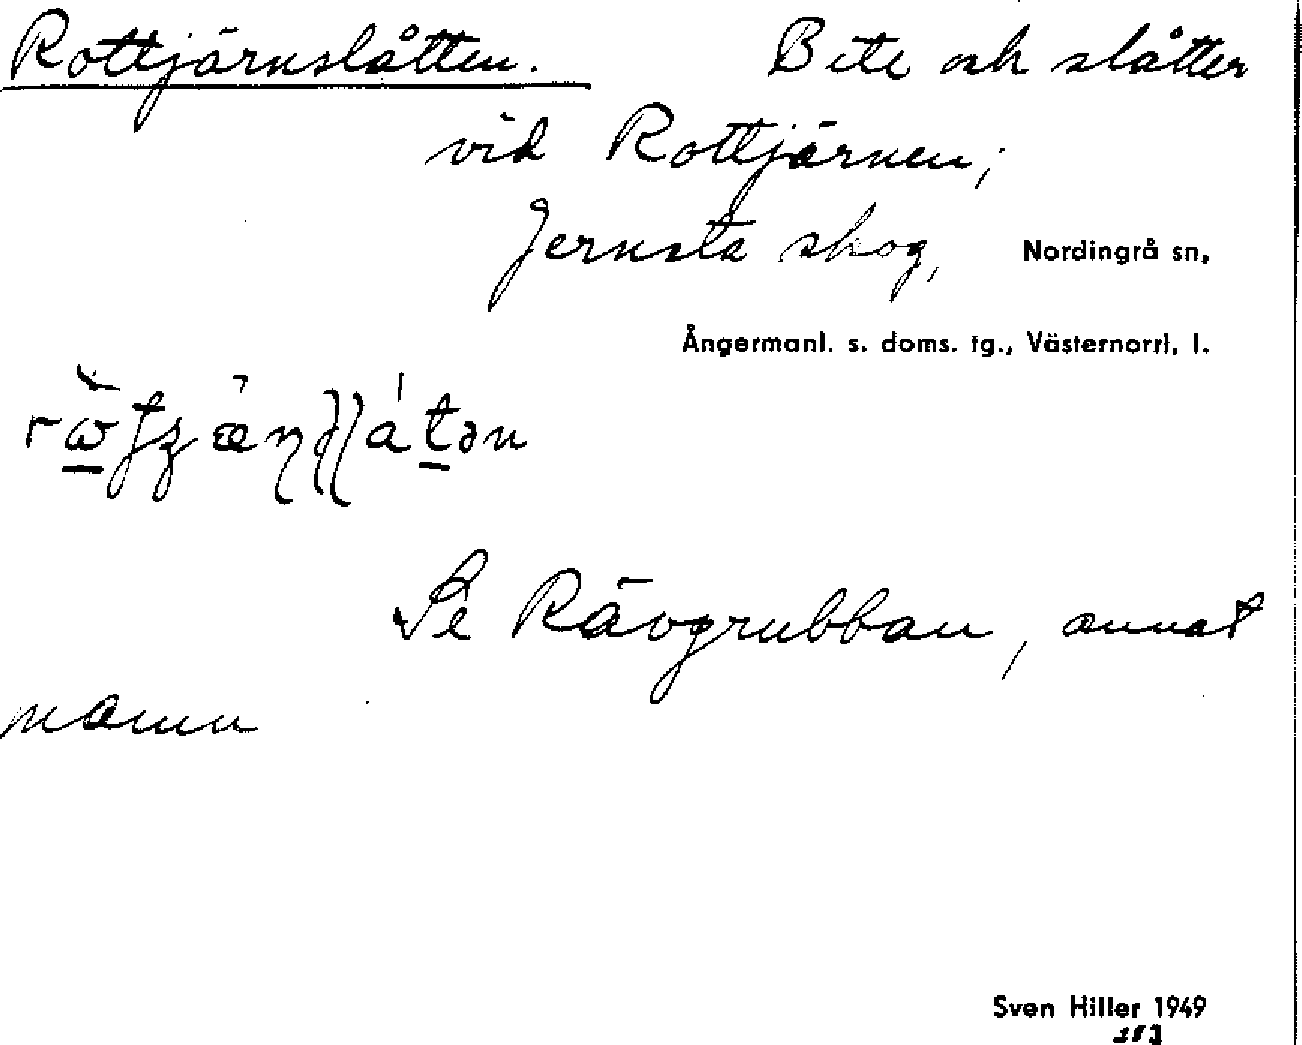 Rottjärnslåtten. Bete och slåtter
vid Rottjärnen;
Jernsta skog, Nordingrå sn,
Ångermanl. s. doms. tg., Västernorrl. l.
Se Rävgrubban, annat
namn
Sven Hiller 1949